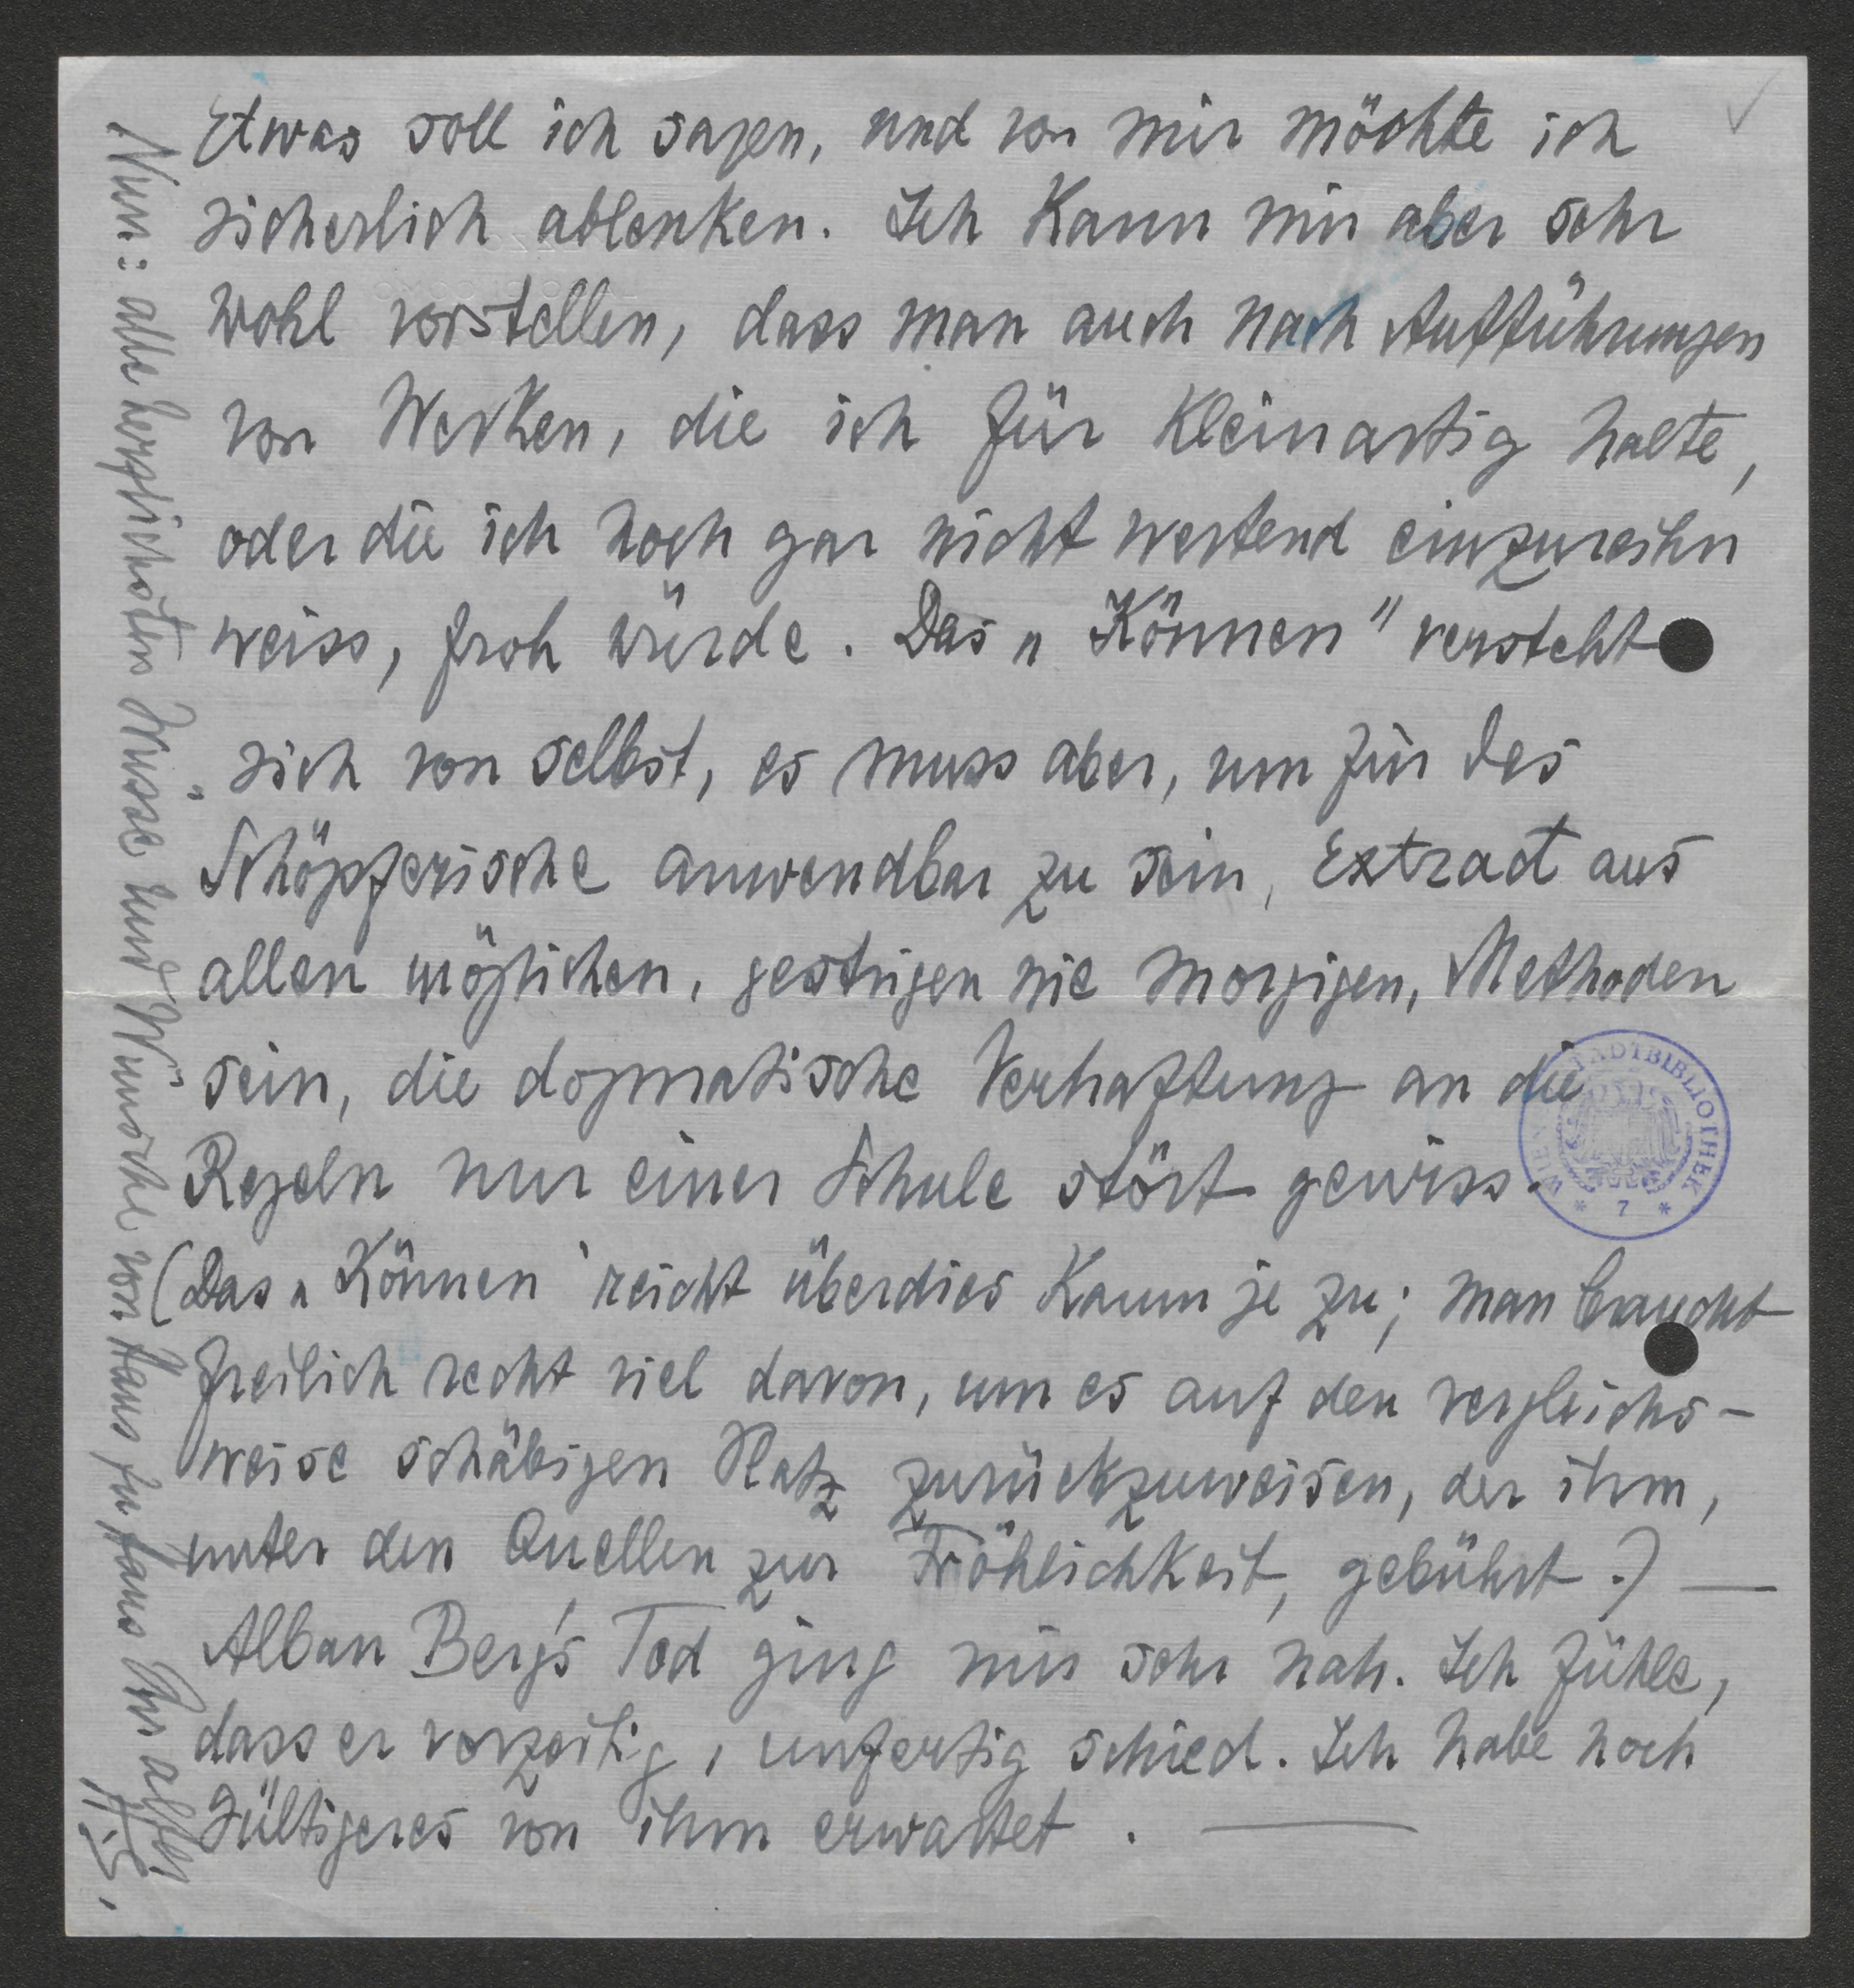 Etwas soll ich sagen, und von mir möchte ich
sicherlich ablenken. Ich kann mir aber sehr
wohl vorstellen, dass man auch nach Aufführungen
von Werken, die ich für kleinartig halte,
oder die ich noch gar nicht wertend einzureihn
weiss, froh würde. Das „Können" versteht
sich von selbst, es muss aber, um für das
Schöpferische anwendbar zu sein, Extract aus
allen möglichen, gestrigen wie morgigen, Methoden
sein, die dogmatische Verhaftung an die
Regeln nur einer Schule stört gewiss.
(Das „Können' reicht überdies kaum je zu; man braucht
freilich recht viel davon, um es auf den vergleichs-
weise schäbigen Platz zurückzuweisen, der ihm,
unter den Quellen zur Fröhlichkeit, gebührt.) —
Alban Berg's Tod ging mir sehr nah. Ich fühle,
dass er vorzeitig, unfertig schied. Ich habe noch
Gültigeres von ihm erwartet. —
Nun: alle herzlichsten Grüsse und Wünsche von Haus zu Haus Ihr alter
WIENER STADTBIBLIOTHEK
* 7 *